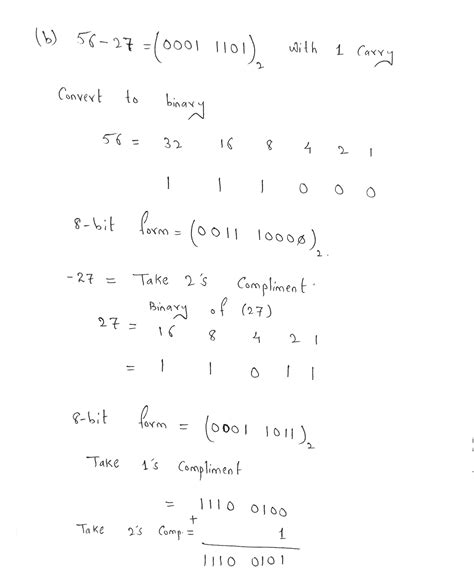 (b) 56-27 = (0001 1101)₂ with 1 Carry
Convert to binary
56 = 32 16 8 4 2 1
1 1 1 0 0 0
8-bit form = (0011 1000)₂.
-27 = Take 2's Compliment.
Binary of (27)
27 = 16 8 4 2 1
= 1 1 0 1 1
8-bit form = (0001 1011)₂
Take 1's Compliment
= 1110 0100
Take 2's Comp = + 1
1110 0101